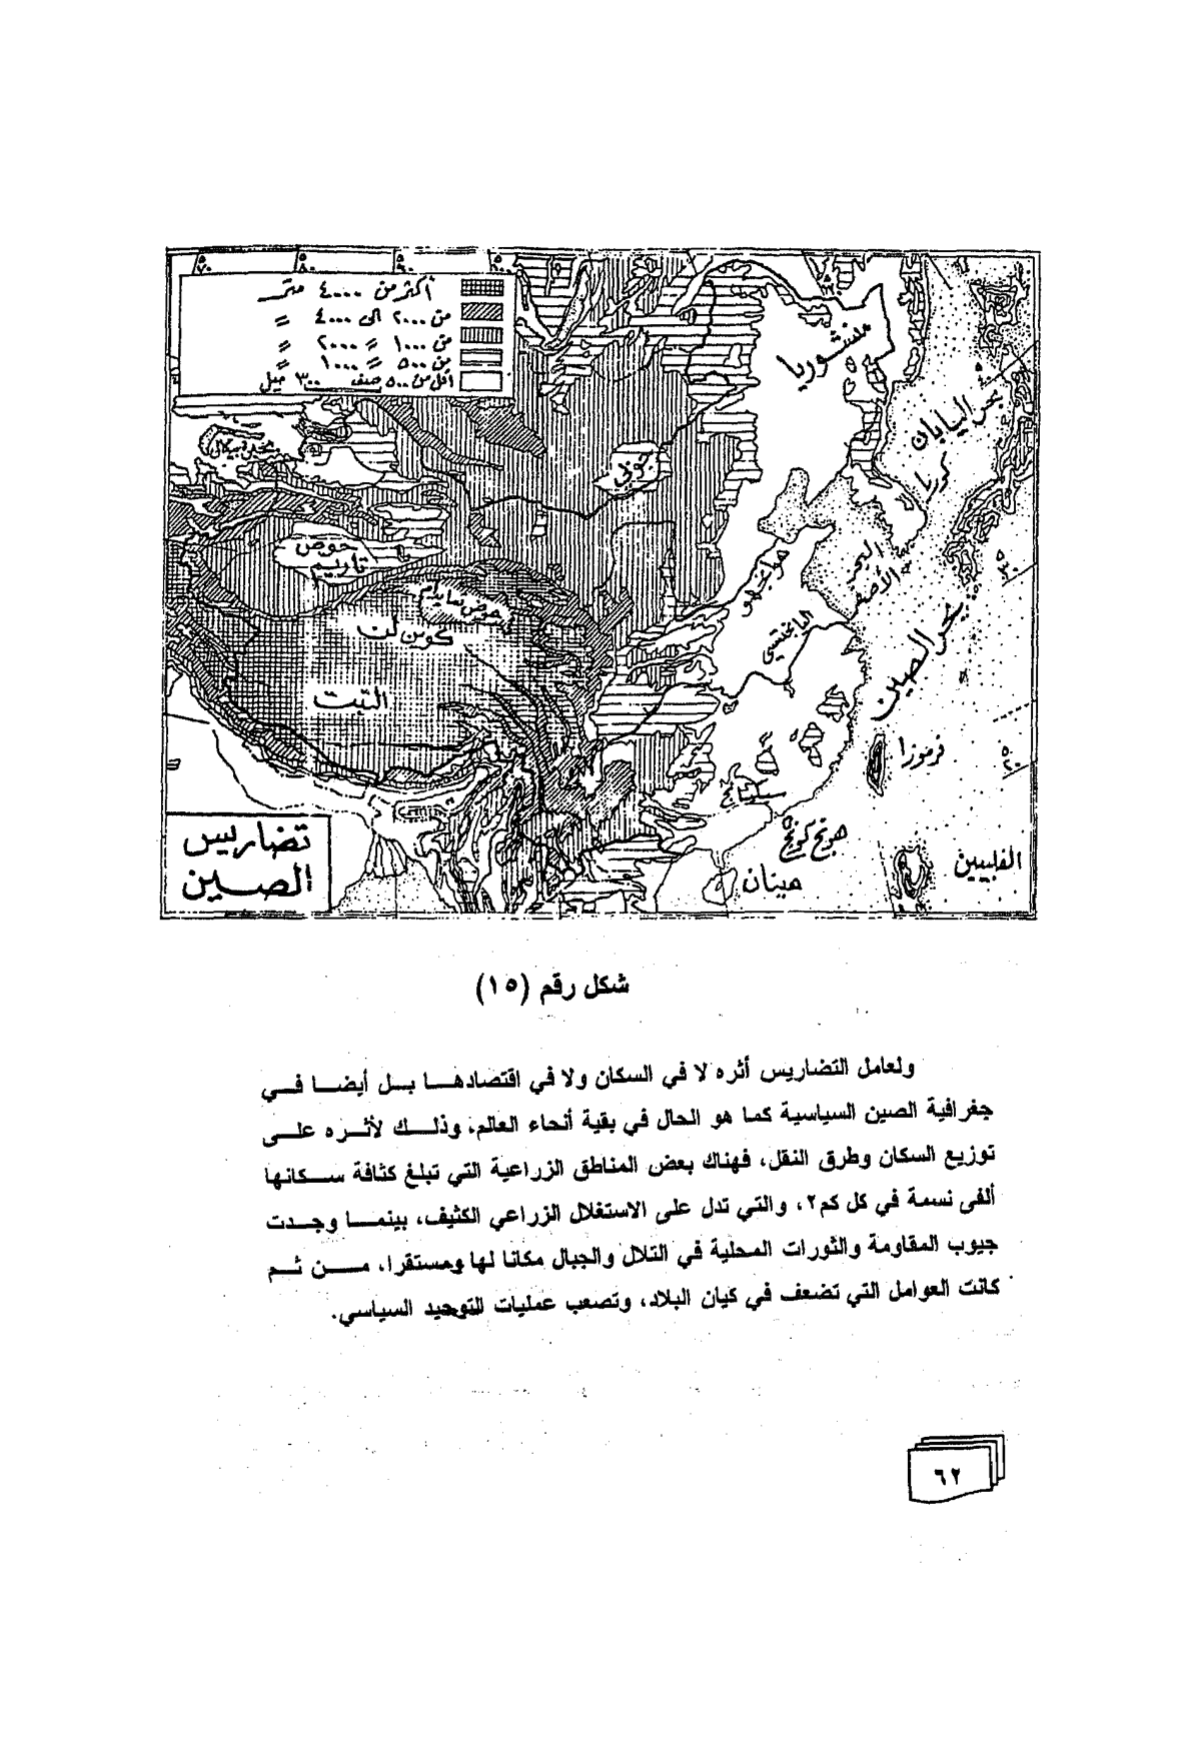 أكثر من ٤٠٠٠ متر
من ٢٠٠٠ الى ٤٠٠٠ =
من ١٠٠٠ = ٢٠٠٠ =
من ٥٠٠ = ١٠٠٠ =
أقل من ٥٠٠ صفر ٣٠٠ ميل
منشوريا
بحر اليابان
كوريا
جوبي
حوض
تاريم
حوض سايدام
كوين لن
التبت
هوانجهو
اليانجتسي
البحر
الأصفر
بحر الصين
فرموزا
سيكيانج
هونج كونج
هينان
الفلبيين
تضاريس
الصين
شكل رقم (١٥)
ولعامل التضاريس أثره لا في السكان ولا في اقتصادهـا بـل أيضـا فـي
جغرافية الصين السياسية كما هو الحال في بقية أنحاء العالم، وذلـك لأثـره علـى
توزيع السكان وطرق النقل، فهناك بعض المناطق الزراعية التي تبلغ كثافة سـكانها
ألفى نسمة في كل كم٢، والتي تدل على الاستغلال الزراعي الكثيف، بينمـا وجـدت
جيوب المقاومة والثورات المحلية في التلال والجبال مكانا لها ومستقرا، مـن ثـم
كانت العوامل التي تضعف في كيان البلاد، وتصعب عمليات التوحيد السياسي.
٦٢